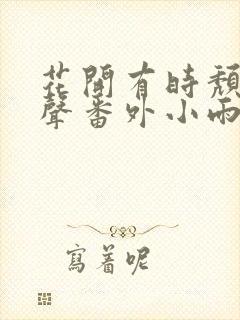 花開有時頹
聲番外小雨
寫着呢